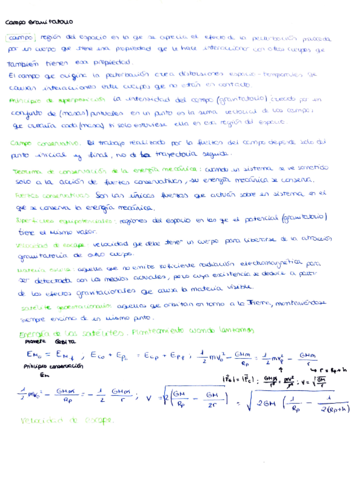 CAMPO GRAVITATORIO
Campo: región del espacio en la que se aprecia el efecto de la perturbación provocada
por un cuerpo que tiene una propiedad que le hace interaccionar con otros cuerpos que
también tienen esa propiedad.
El campo que origina la perturbación crea distorsiones espacio-temporales. Se
causan interacciones entre cuerpos que no están en contacto.
Principio de superposición: La intensidad del campo (gravitatorio) creado por un
conjunto de (masas) puntuales en un punto es la suma vectorial de los campos
que crearía cada (masa) si solo estuviese ella en esa región del espacio.
Campo conservativo: El trabajo realizado por la fuerza del campo depende solo del
punto inicial y final, no de la trayectoria seguida.
Teorema de conservación de la energía mecánica: cuando un sistema se ve sometido
solo a la acción de fuerzas conservativas, su energía mecánica se conserva.
Fuerzas conservativas: Son las únicas fuerzas que actúan sobre un sistema en el
que se conserva la energía mecánica.
Superficies equipotenciales: regiones del espacio en las que el potencial (gravitatorio)
tiene el mismo valor.
Velocidad de escape: velocidad que debe tener un cuerpo para liberarse de la atracción
gravitatoria de otro cuerpo.
Materia oscura: aquella que no emite suficiente radiación electromagnética para
ser detectada con los medios actuales, pero cuya existencia se deduce a partir
de los efectos gravitacionales que causa la materia visible.
Satélite geoestacionario: aquellos que orbitan en torno a la Tierra, manteniéndose
siempre encima de un mismo punto.
Energía de los satélites. Planteamiento cuando lanzamos
PLANETA ÓRBITA
Principio conservación
Em
Velocidad de escape